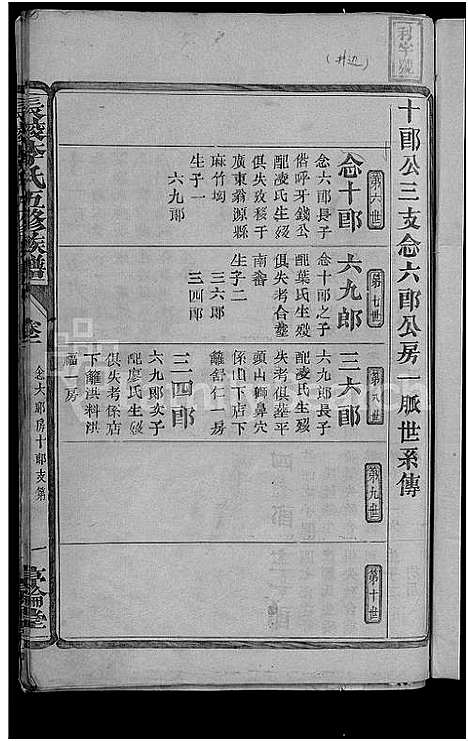 利字號
(井边)
十郎公三支念六郎公房一脈世系傳
第六世
念十郎
念六郎長子
偕呼牙錢公
配凌氏生殁
俱失攷移于
廣東翁源縣
麻竹坳
生子一
六九郎
第七世
六九郎
念十郎之子
配葉氏生殁
俱失考合塟
南畲
生子二
三六郎
三四郎
第八世
三六郎
六九郎長子
配凌氏生殁
失考俱塟平
頭山獅鼻穴
係山下店下
籬舒仁一房
三四郎
六九郎次子
配廖氏生殁
俱失考係店
下籬洪料洪
福一房
第九世
第十世
李氏五修族譜
卷一
念六郎房十郎支第
一